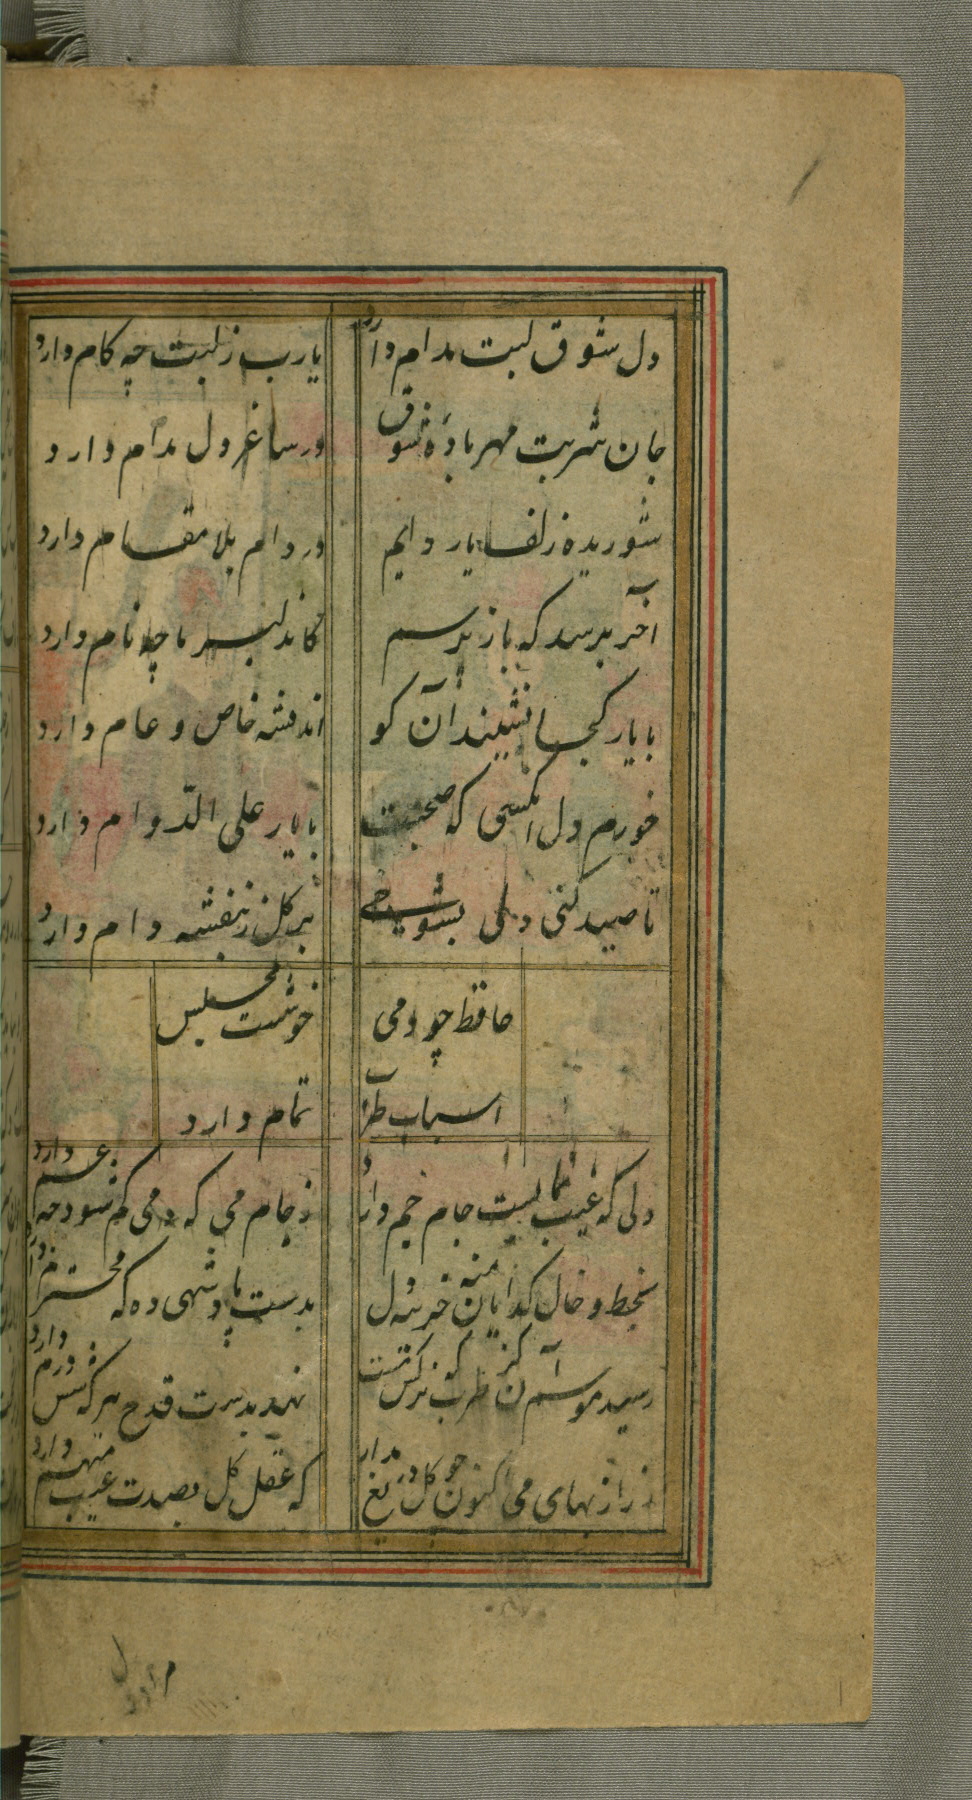 دل شوق لبت مدام دارد
یارب ز لبت چه کام دارد
جان شربت مهر باده شوق
در ساغر دل مدام دارد
شوریده زلف یار دایم
در دام بلا مقام دارد
آخر برسد که باز پرسم
کاندلبر ما چه نام دارد
با یار کجا نشیند آن کو
اندیشه خاص و عام دارد
خورم دل آنکسی که صحبت
با یار علی الدّوام دارد
تا صید کنی دلی بشوخی
بر گل ز بنفشه دام دارد
حافظ چو دمی
خوشت مجلس
اسباب طرب
تمام دارد
دلی که غیب نمایست جام جم دارد
ز جام می که دمی گم شود چه غم دارد
بخط و خال گدایان منه خزینه دل
بدست پادشهی ده که محترم دارد
رسید موسم آن کز طرب که نرگس مست
نهد بدست قدح هر که شش درم دارد
زر از بهای می اکنون چو گل دریغ مدار
که عقل کل بصدت عیب متهم دارد